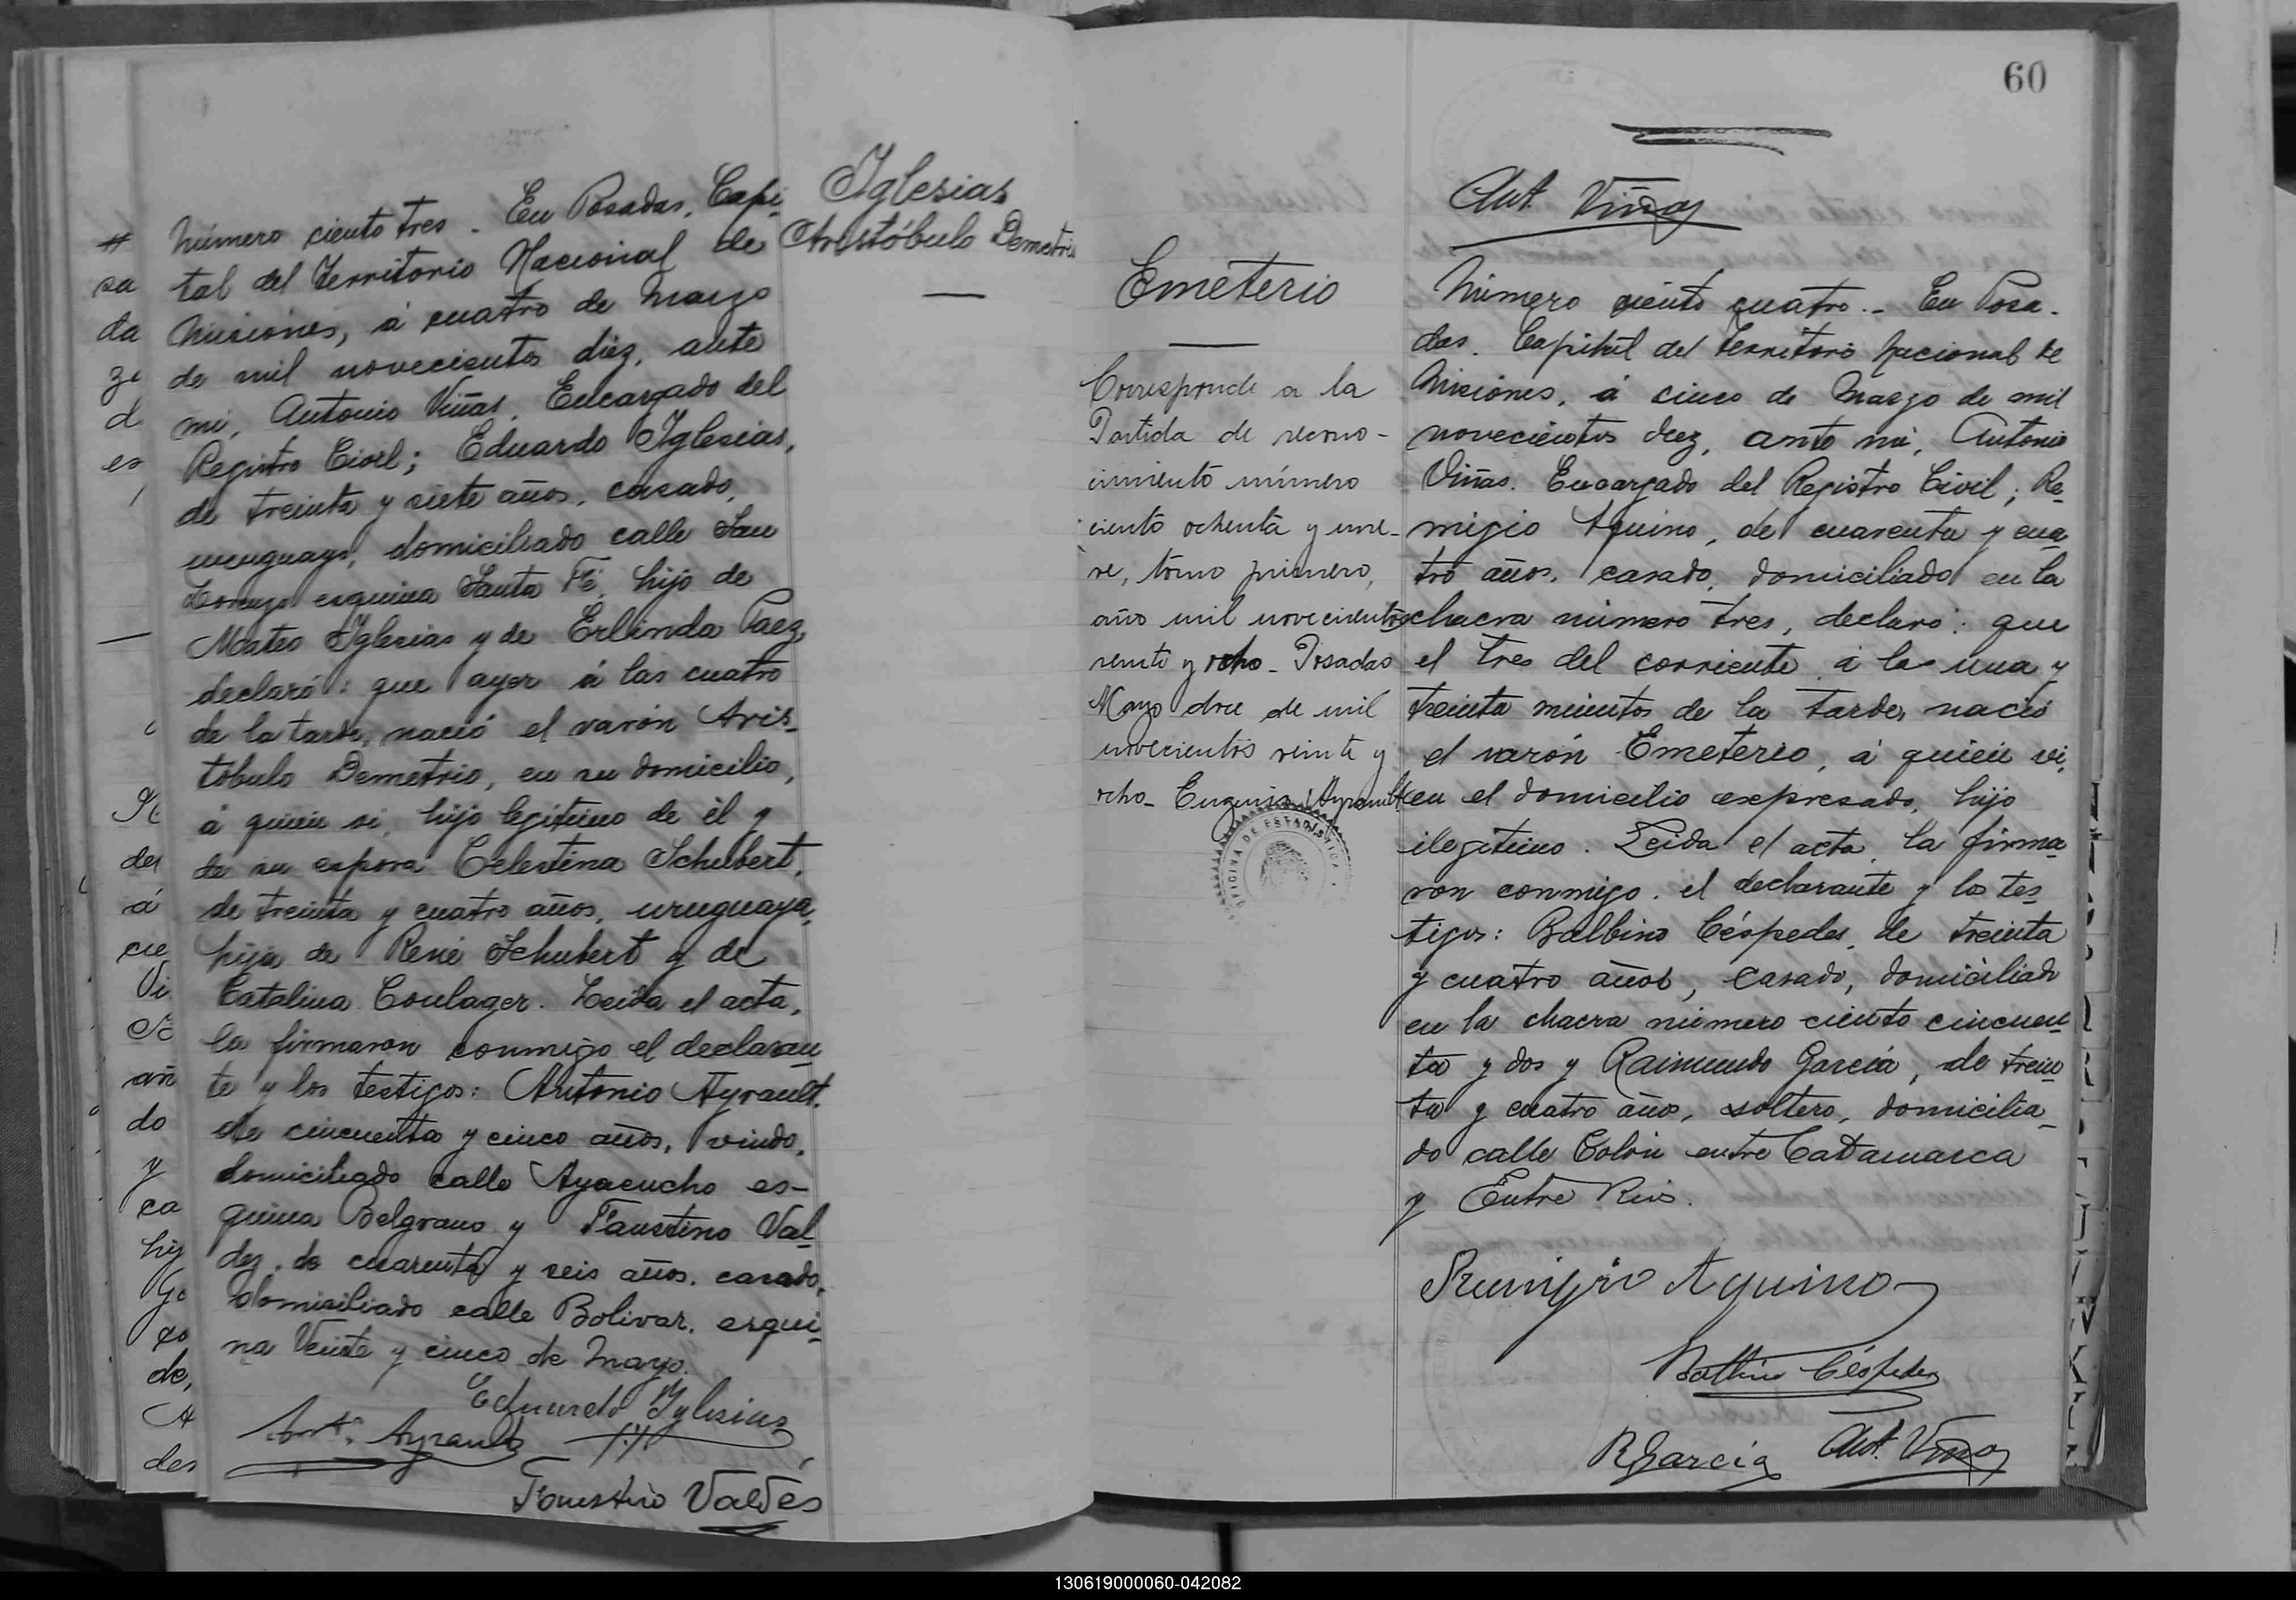 Número ciento tres. En Posadas, Capi-
tal del Territorio Nacional de
Misiones, á cuatro de Marzo
de mil novecientos diez, ante
mi, Antonio Viñas, Encargado del
Registro Civil; Eduardo Iglesias,
de treinta y siete años, casado,
uruguayo, domiciliado calle San
Lorenzo esquina Santa Fé, hijo de
Mateo Iglesias y de Erlinda Paez,
declaró: que ayer á las cuatro
de la tarde, nació el varón Aris-
tóbulo Demetrio, en su domicilio,
á quien vi, hijo legítimo de él y
de su esposa Celestina Schubert,
de treinta y cuatro años, uruguaya,
hija de René Schubert y de
Catalina Coulager. Leida el acta,
la firmaron conmigo el declaran-
te y los testigos: Antonio Ayrault,
de cincuenta y cinco años, viudo,
domiciliado calle Ayacucho es-
quina Belgrano y Faustino Val-
dez, de cuarenta y seis años, casado,
domiciliado calle Bolivar, esqui-
na Veinte y cinco de Mayo.
Eduardo Iglesias
Ant. Ayrault
Faustino Valdés
Iglesias
Aristóbulo Demetrio
#
sa
da
ze
d
es
der
á
cue
Vi
añ
do
y
ca
hij
Ge
go
de,
A
des
60
Ant. Viñas
Emeterio
Corresponde a la
Partida de recono-
cimiento número
ciento ochenta y nue-
ve, tomo primero,
año mil novecientos
veinte y ocho - Posadas
Mayo doce de mil
novecientos veinte y
ocho - Eugenio Ayrault
OFICINA DE ESTADISTICA
Número ciento cuatro.- En Posa-
das, Capital del Territorio Nacional de
Misiones, á cinco de Marzo de mil
novecientos diez, ante mi, Antonio
Viñas, Encargado del Registro Civil; Re-
migio Aquino, de cuarenta y cua-
tro años, casado, domiciliado en la
chacra número tres, declaró: que
el tres del corriente, á la una y
treinta minutos de la tarde, nació
el varón Emeterio, á quien vi,
en el domicilio expresado, hijo
ilegítimo. Leida el acta, la firma-
ron conmigo, el declarante y los tes-
tigos: Balbino Céspedes, de treinta
y cuatro años, casado, domiciliado
en la chacra número ciento cincuen-
ta y dos y Raimundo García, de trein-
ta y cuatro años, soltero, domicilia-
do calle Colón entre Catamarca
y Entre Rios.
Remigio Aquino
Balbino Céspedes
R García Ant. Viñas
130619000060-042082